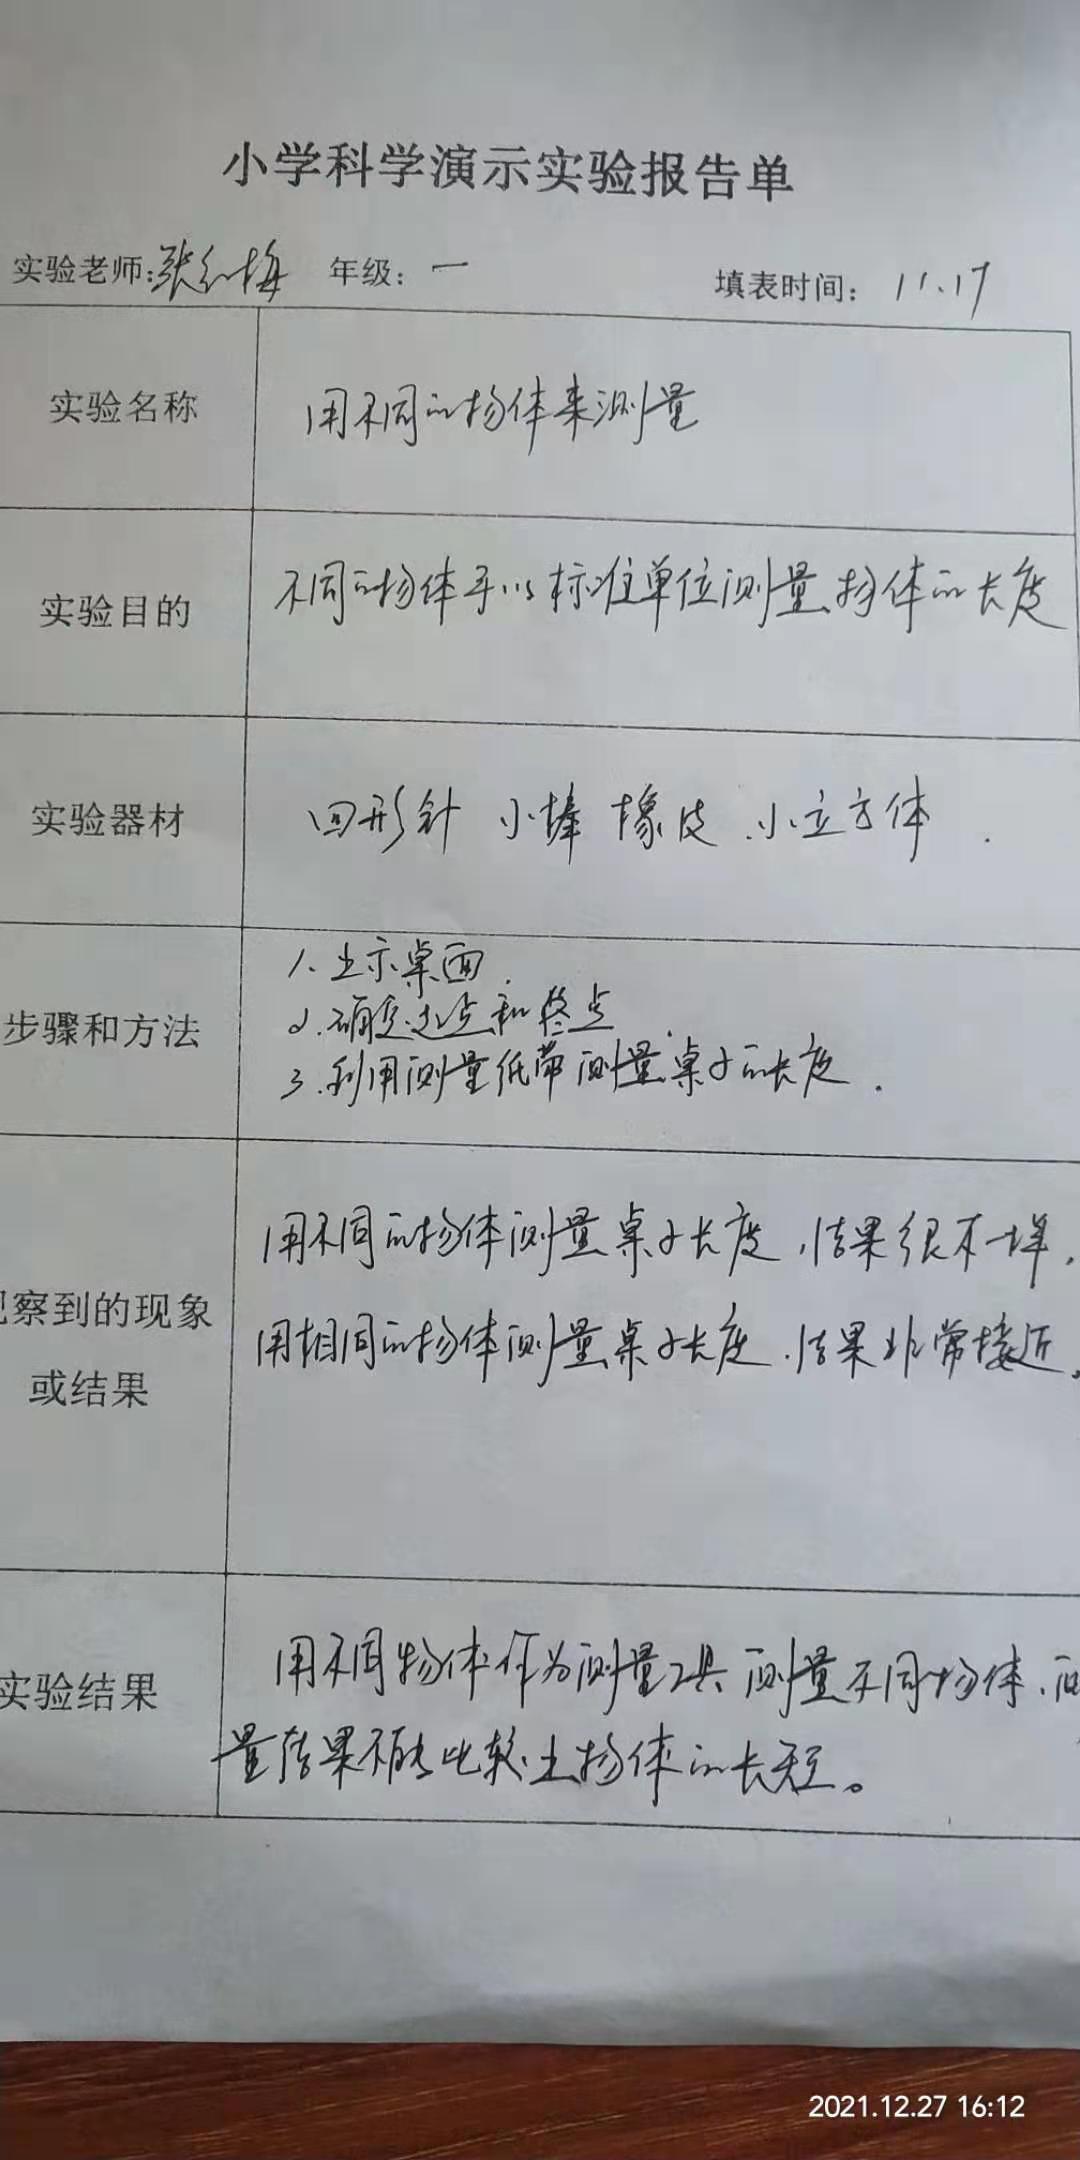 小学科学演示实验报告单
实验老师:张红梅 年级: 一 填表时间: 11.17
实验名称 用不同的物体来测量
实验目的 不同的物体 标准单位测量物体的长度
实验器材 回形针 小棒 橡皮 小立方体
步骤和方法
1.出示桌面
2.确定起点和终点
3.利用测量纸带测量桌子的长度.
察到的现象
或结果
用不同的物体测量桌子长度,结果很不一样,
用相同的物体测量桌子长度,结果非常接近。
实验结果
用不同物体作为测量工具测量不同物体,
量结果不能比较出物体的长短。
2021.12.27 16:12